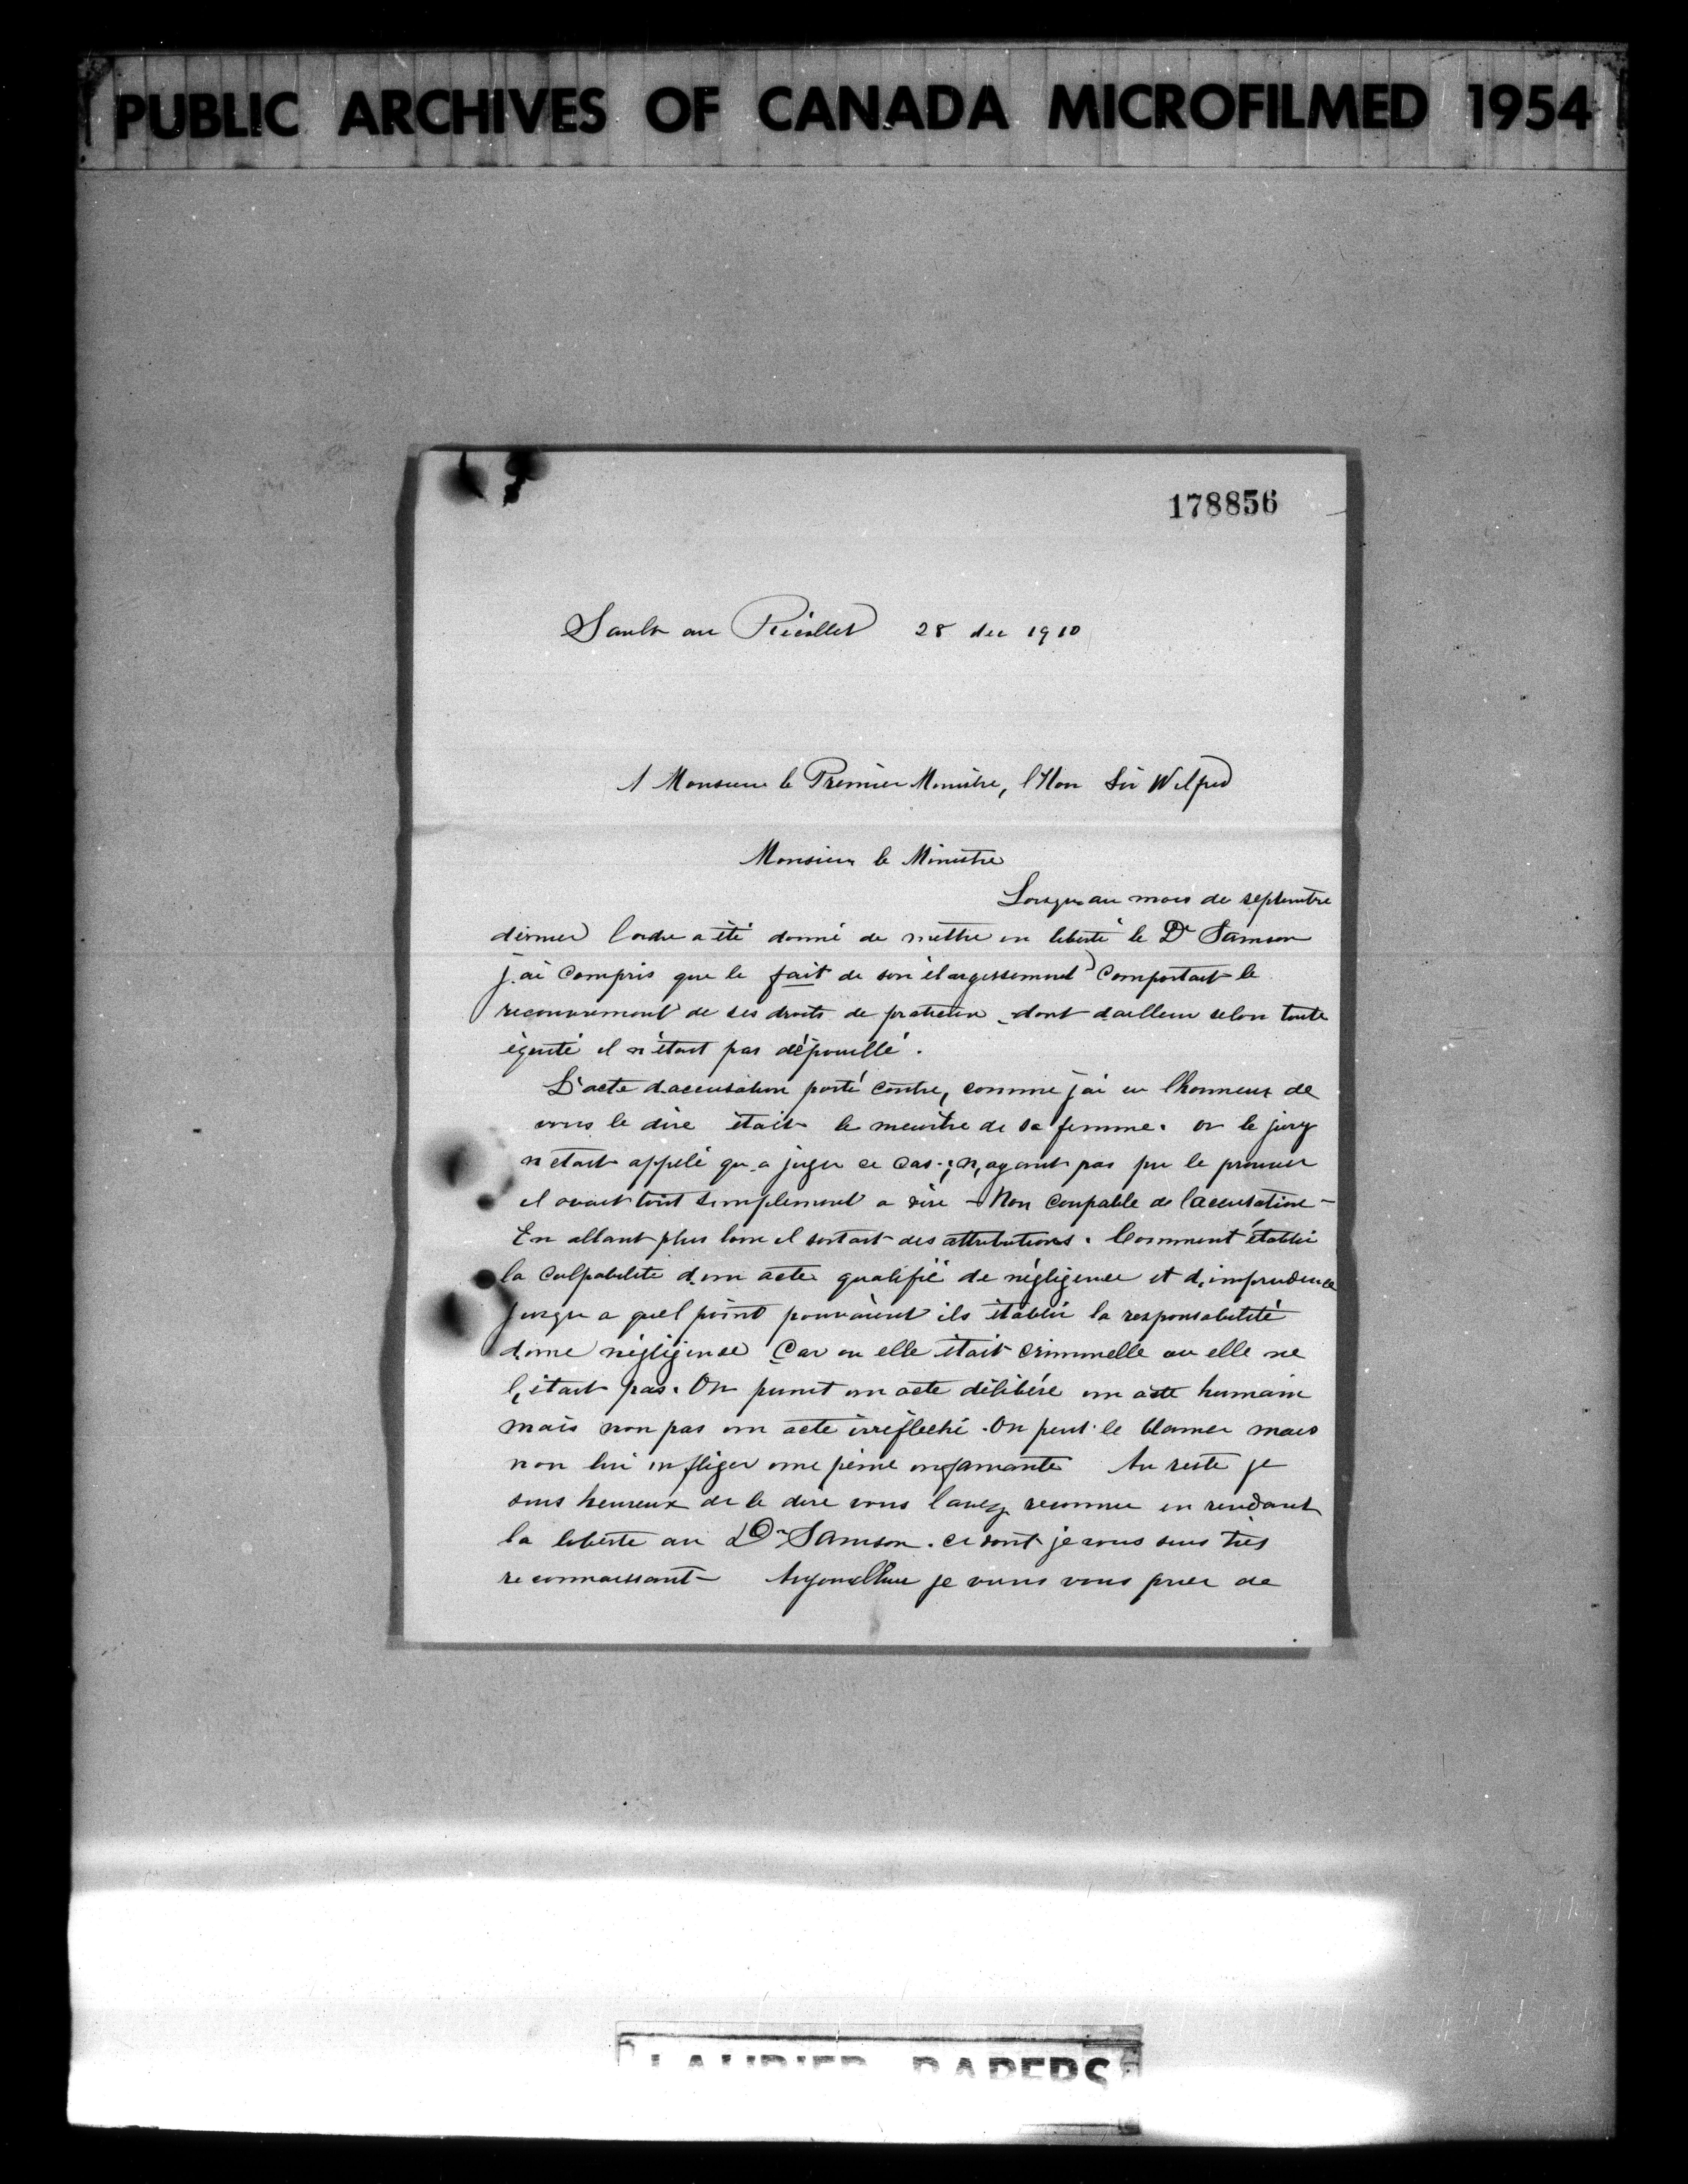 PUBLIC ARCHIVES OF CANADA MICROFILMED 1954
178856
Sault au Récollet 28 dec 1910
A Monsieur le Premier Ministre, l'Hon Sir Wilfred
Monsieur le Ministre
Lorsqu au mois de septembre
dernier l'ordre a été donné de mettre en liberté le Dr Samson
j'ai compris que le fait de son élargissement comportait le
recouvrement de ses droits de praticien dont d'ailleurs selon toute
équité il n'était pas dépouillé.
L'acte d'accusation porté contre, comme j'ai eu l'honneur de
vous le dire était le meurtre de sa femme. or le jury
n'était appelé qu a juger ce cas; n'ayant pas pu le prouver
il avait tout simplement a dire - Non coupable de l'accusation -
En allant plus loin il sortait des attributions. Comment établir
la culpabilité d'un acte qualifié de négligence et d'imprudence
jusqu a quel point pouvaient ils établir la responsabilité
d'une négligence Car ou elle était criminelle ou elle ne
l'était pas. On punit un acte délibéré un acte humain
mais non pas un acte irréfléchi. On peut le blamer mais
non lui infliger une peine infamante Au reste je
suis heureux de le dire vous l'avez reconnu en rendant
la liberté au Dr Samson. ce dont je vous suis très
reconnaissant Aujourd'hui je viens vous prier de
LAURIER PAPERS